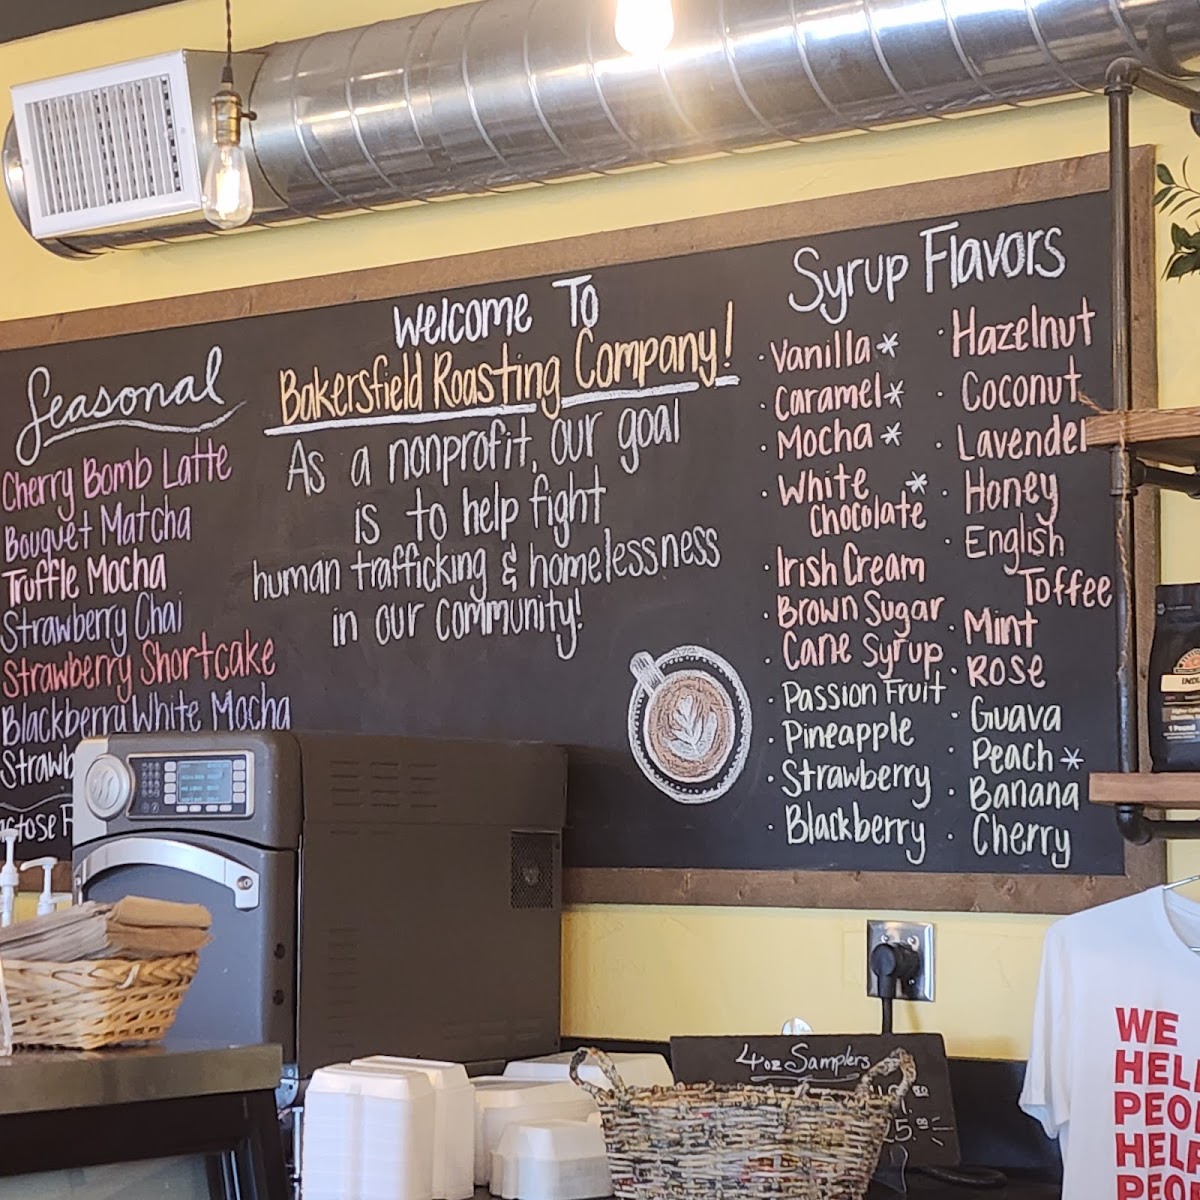 Seasonal
Cherry Bomb Latte
Bouquet Matcha
Truffle Mocha
Strawberry Chai
Strawberry Shortcake
Blackberry White Mocha
Welcome To
Bakersfield Roasting Company!
As a nonprofit, our goal
is to help fight
human trafficking & homelessness
in our community!
Syrup Flavors
· Vanilla *
· Caramel *
· Mocha *
· White *
Chocolate
· Irish Cream
· Brown Sugar
· Cane Syrup
· Passion Fruit
· Pineapple
· Strawberry
· Blackberry
· Hazelnut
· Coconut
· Lavender
· Honey
· English
Toffee
· Mint
· Rose
· Guava
· Peach *
· Banana
· Cherry
4oz Samplers
1 Pound
WE
HELP
PEO
HELP
PEO